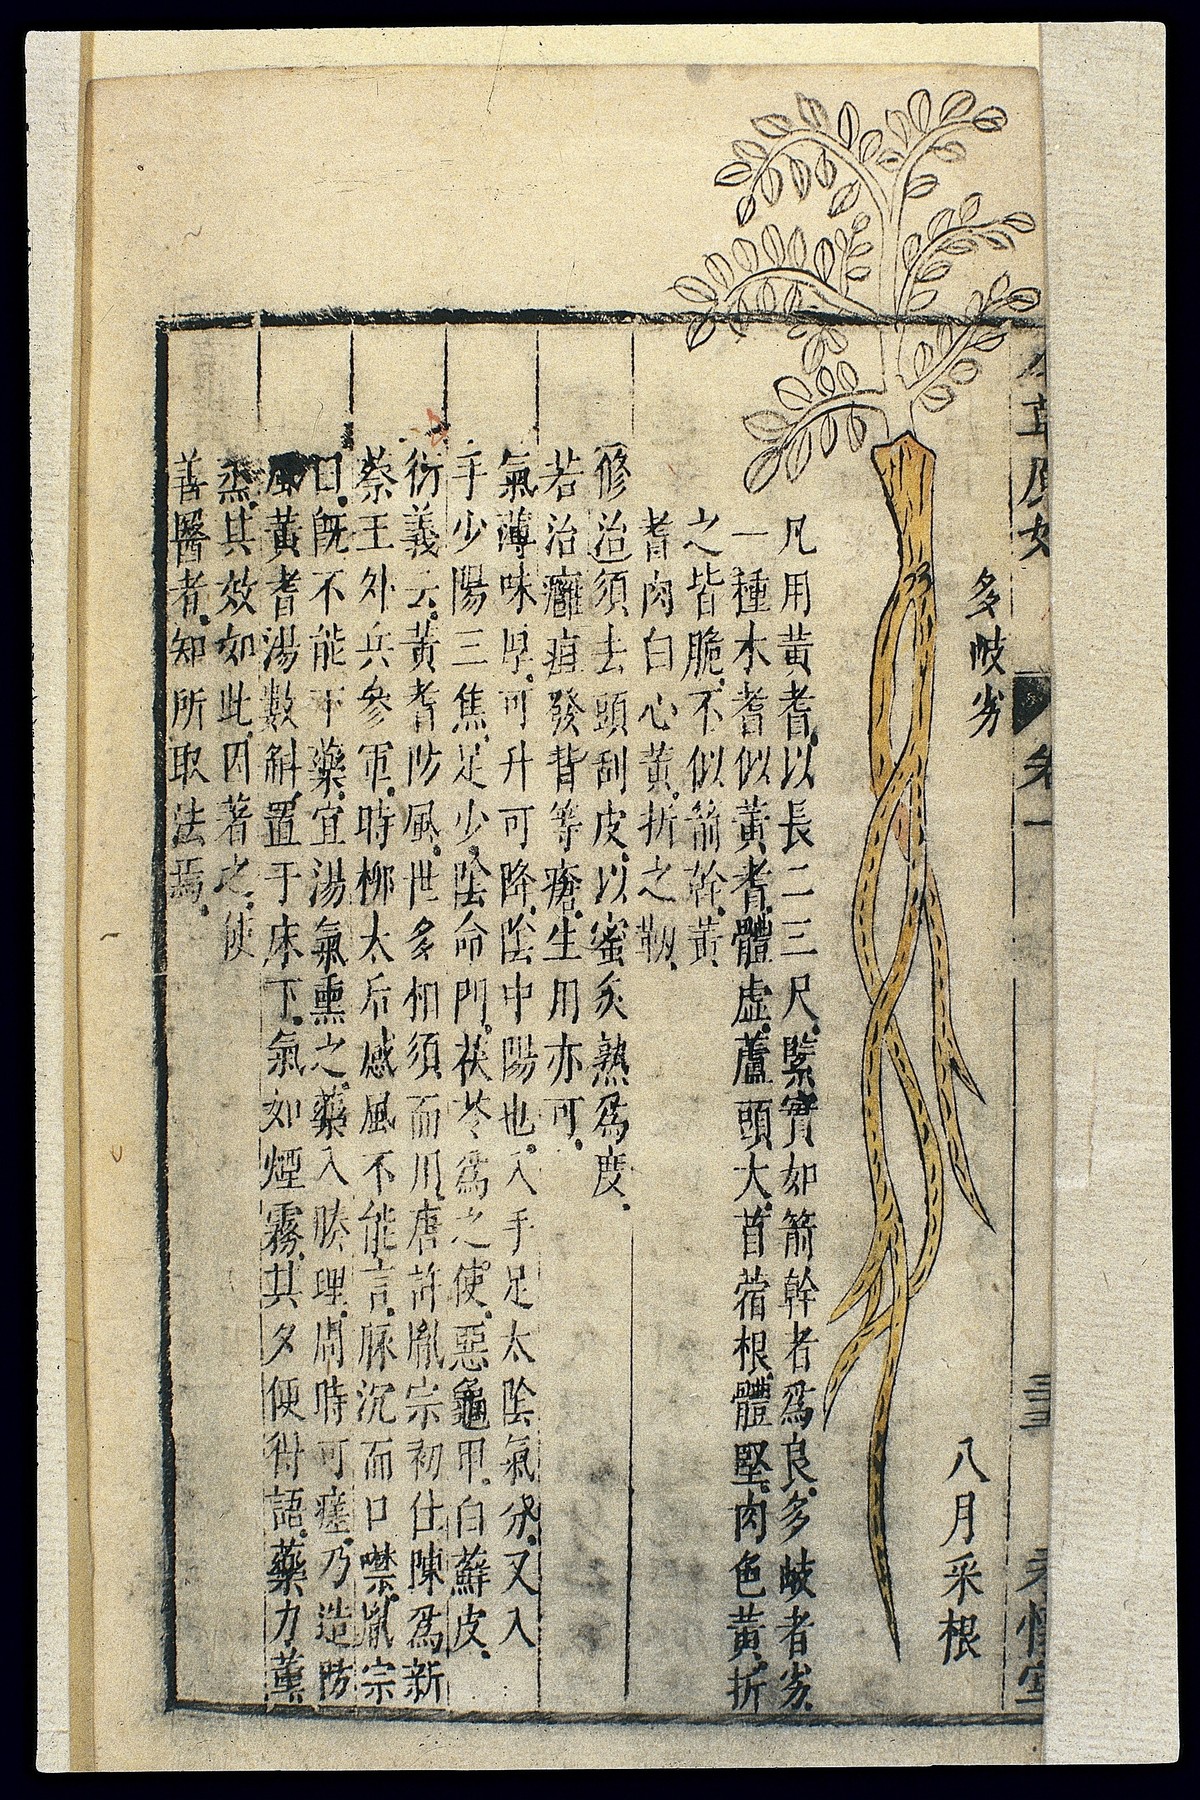 多岐劣
八月采根
凡用黃耆以長二三尺緊實如箭幹者爲良多岐者劣
一種木耆似黃耆體虛蘆頭大苜蓿根體堅肉色黃折
之皆脆不似箭幹黃
耆肉白心黃折之靱
修治須去頭刮皮以蜜炙熟爲度
若治癰疽發背等瘡生用亦可
氣薄味厚可升可降陰中陽也入手足太陰氣分又入
手少陽三焦足少陰命門茯苓爲之使惡龜甲白蘚皮
衍義云黃耆防風世多相須而用唐許胤宗初仕陳爲新
蔡王外兵參軍時柳太后感風不能言脉沉而口噤胤宗
曰既不能下藥宜湯氣熏之藥入腠理周時可瘥乃造防
風黃耆湯數斛置于床下氣如煙霧其夕便得語藥力薰
烝其效如此因著之使
善醫者知所取法焉